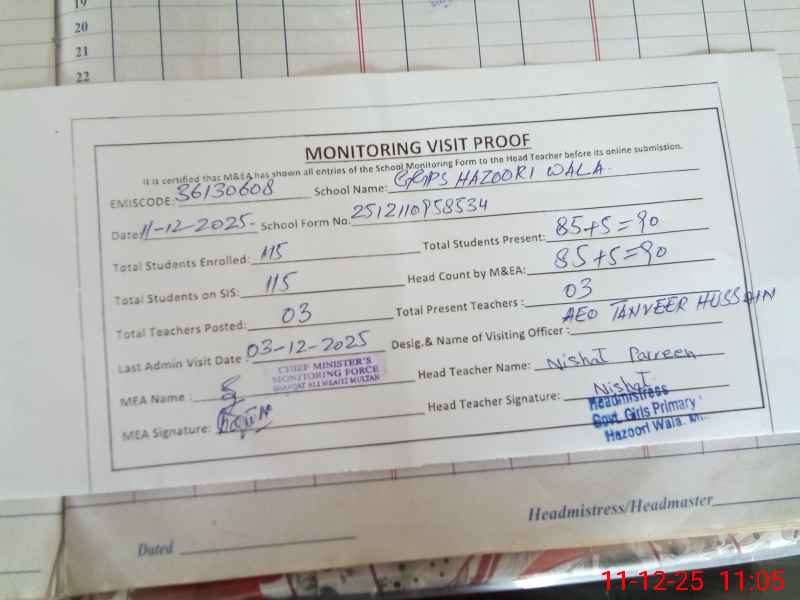 19
20
21
22
MONITORING VISIT PROOF
It is certified that M&EA has shown all entries of the School Monitoring Form to the Head Teacher before its online submission.
EMISCODE: 36130608 School Name: GGPS HAZOORI WALA
Date: 11-12-2025 School Form No. 2512110958534
Total Students Enrolled: 115 Total Students Present: 85+5=90
Total Students on SIS: 115 Head Count by M&EA: 85+5=90
Total Teachers Posted: 03 Total Present Teachers : 03
Last Admin Visit Date : 03-12-2025 Desig.& Name of Visiting Officer : AEO TANVEER HUSSAIN
MEA Name : CHIEF MINISTER'S MONITORING FORCE Head Teacher Name: Nishat Parveen
MEA Signature: Head Teacher Signature: Nishat
Headmistress
Govt. Girls Primary
Hazoori Wala.
Headmistress/Headmaster
Dated
11-12-25 11:05